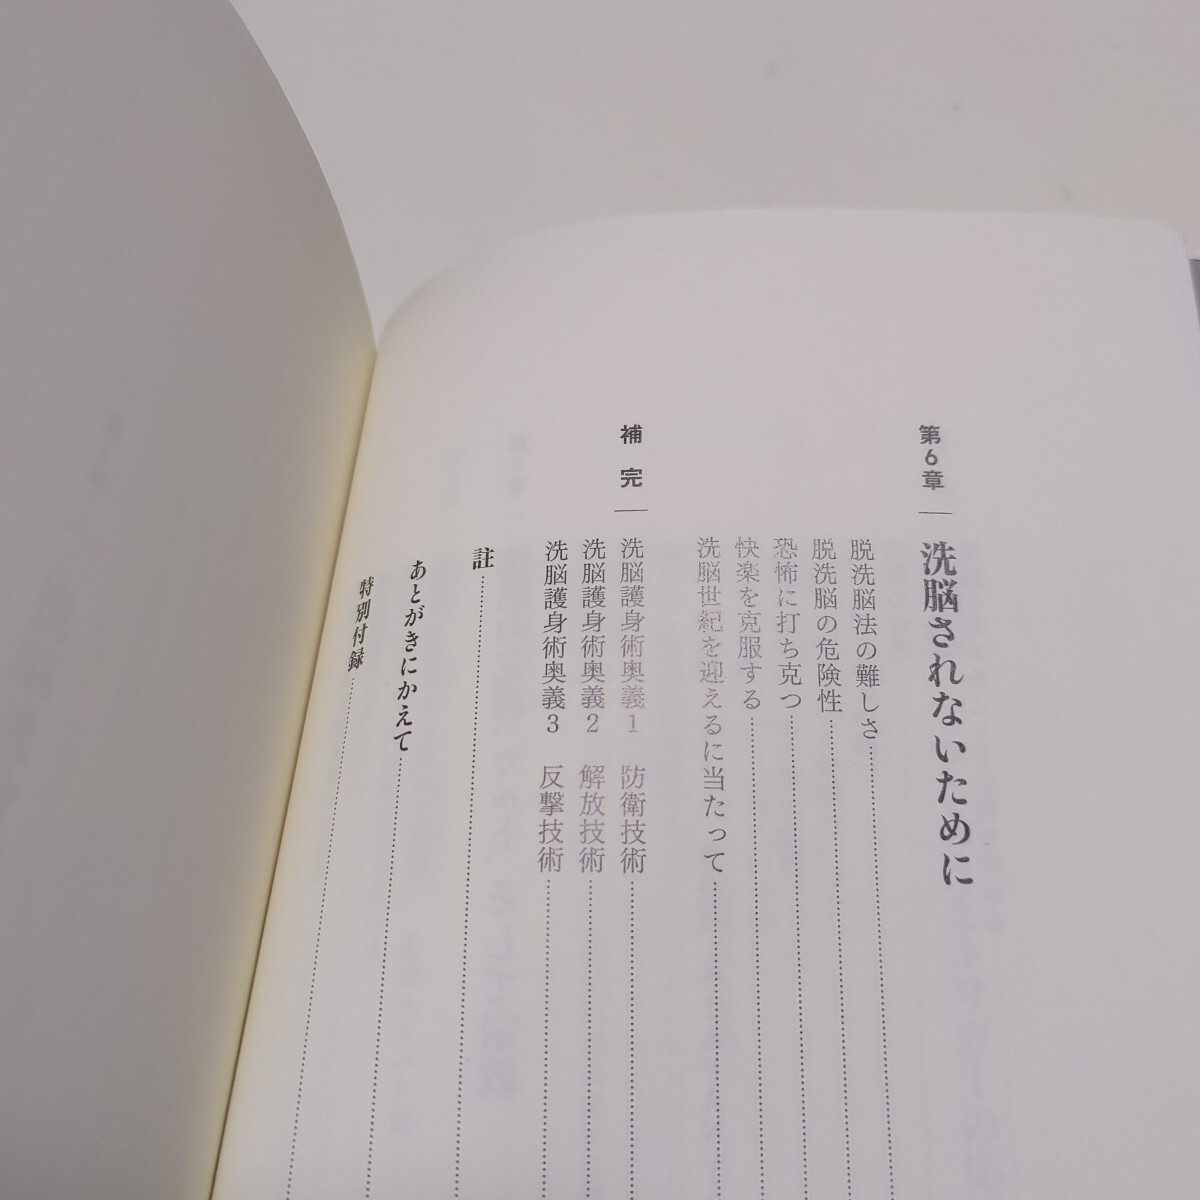 第6章 洗脳されないために
脱洗脳法の難しさ
脱洗脳の危険性
恐怖に打ち克つ
快楽を克服する
洗脳世紀を迎えるに当たって
補完
洗脳護身術奥義1 防衛技術
洗脳護身術奥義2 解放技術
洗脳護身術奥義3 反撃技術
註
あとがきにかえて
特別付録